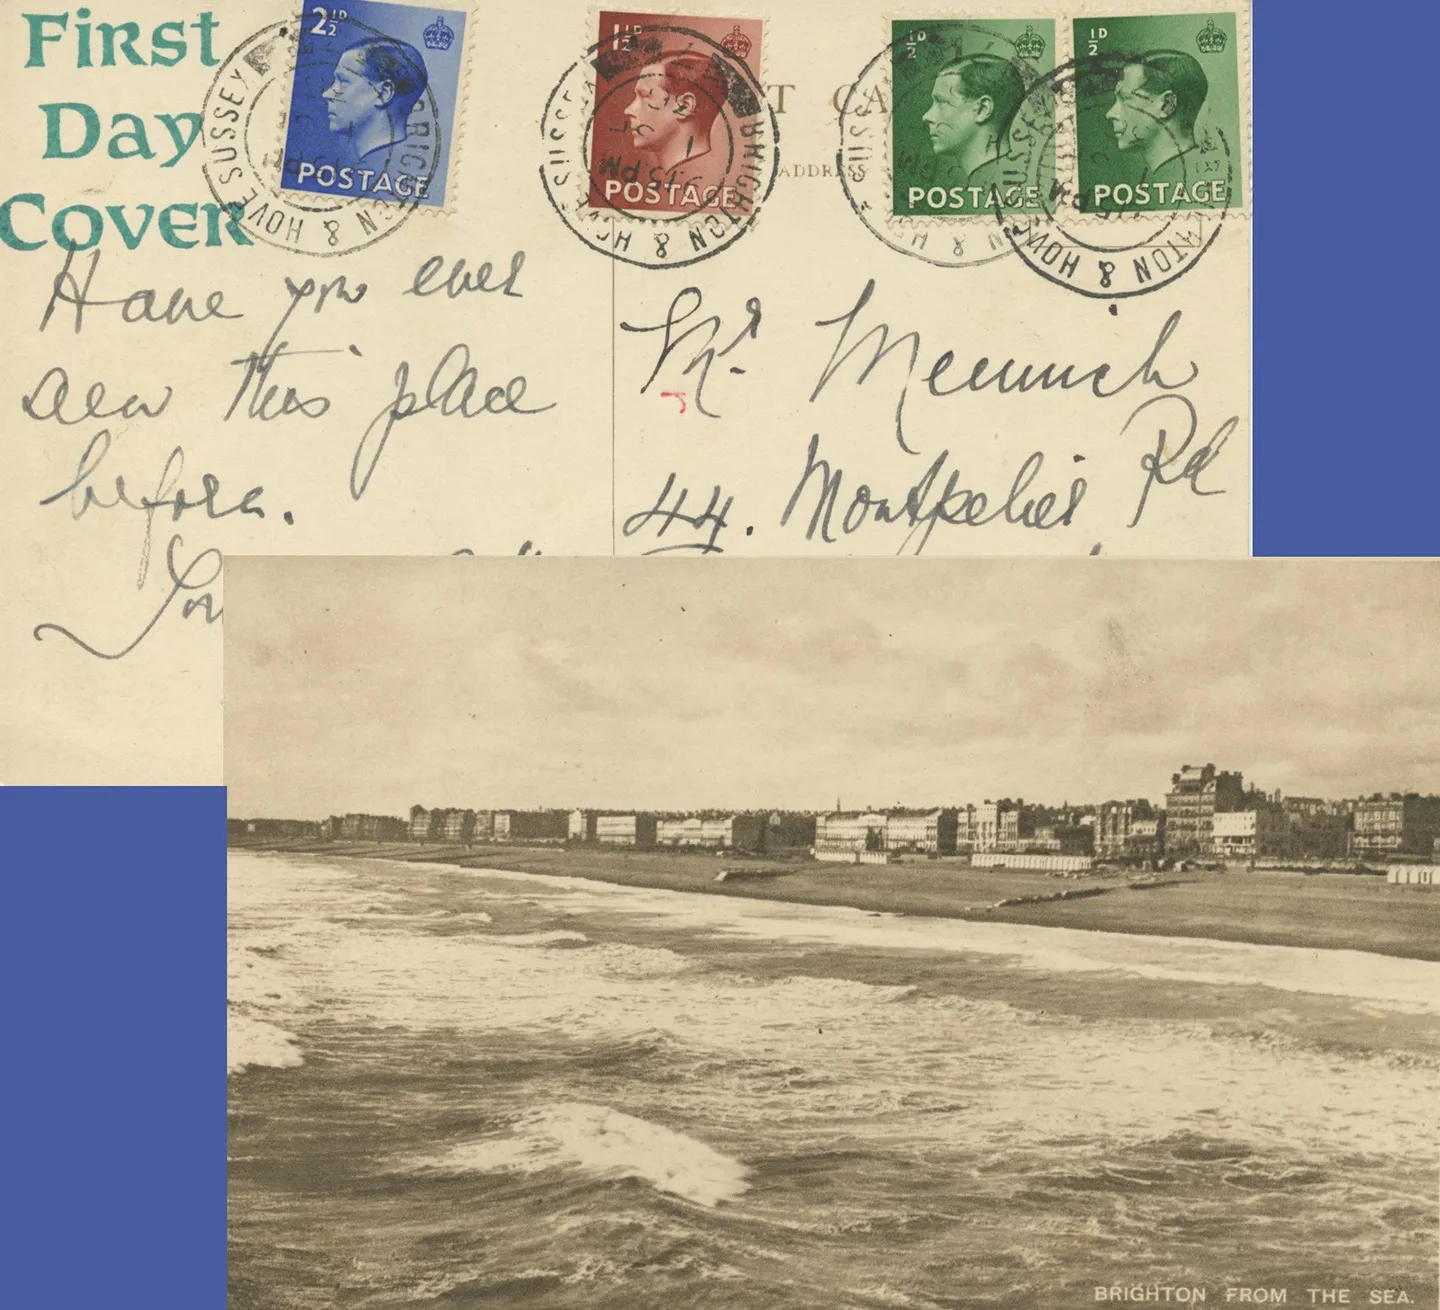 First
Day
Cover
2½D
POSTAGE
1½D
POSTAGE
½D
POSTAGE
½D
POSTAGE
BRIGHTON & HOVE SUSSEX
BRIGHTON & HOVE SUSSEX
& SUSSEX
TON & HOVE SUSSEX
T CA
ADDRESS
Have you ever
seen this place
before.
Mr. Mennich
44. Montpelier Rd
BRIGHTON FROM THE SEA.